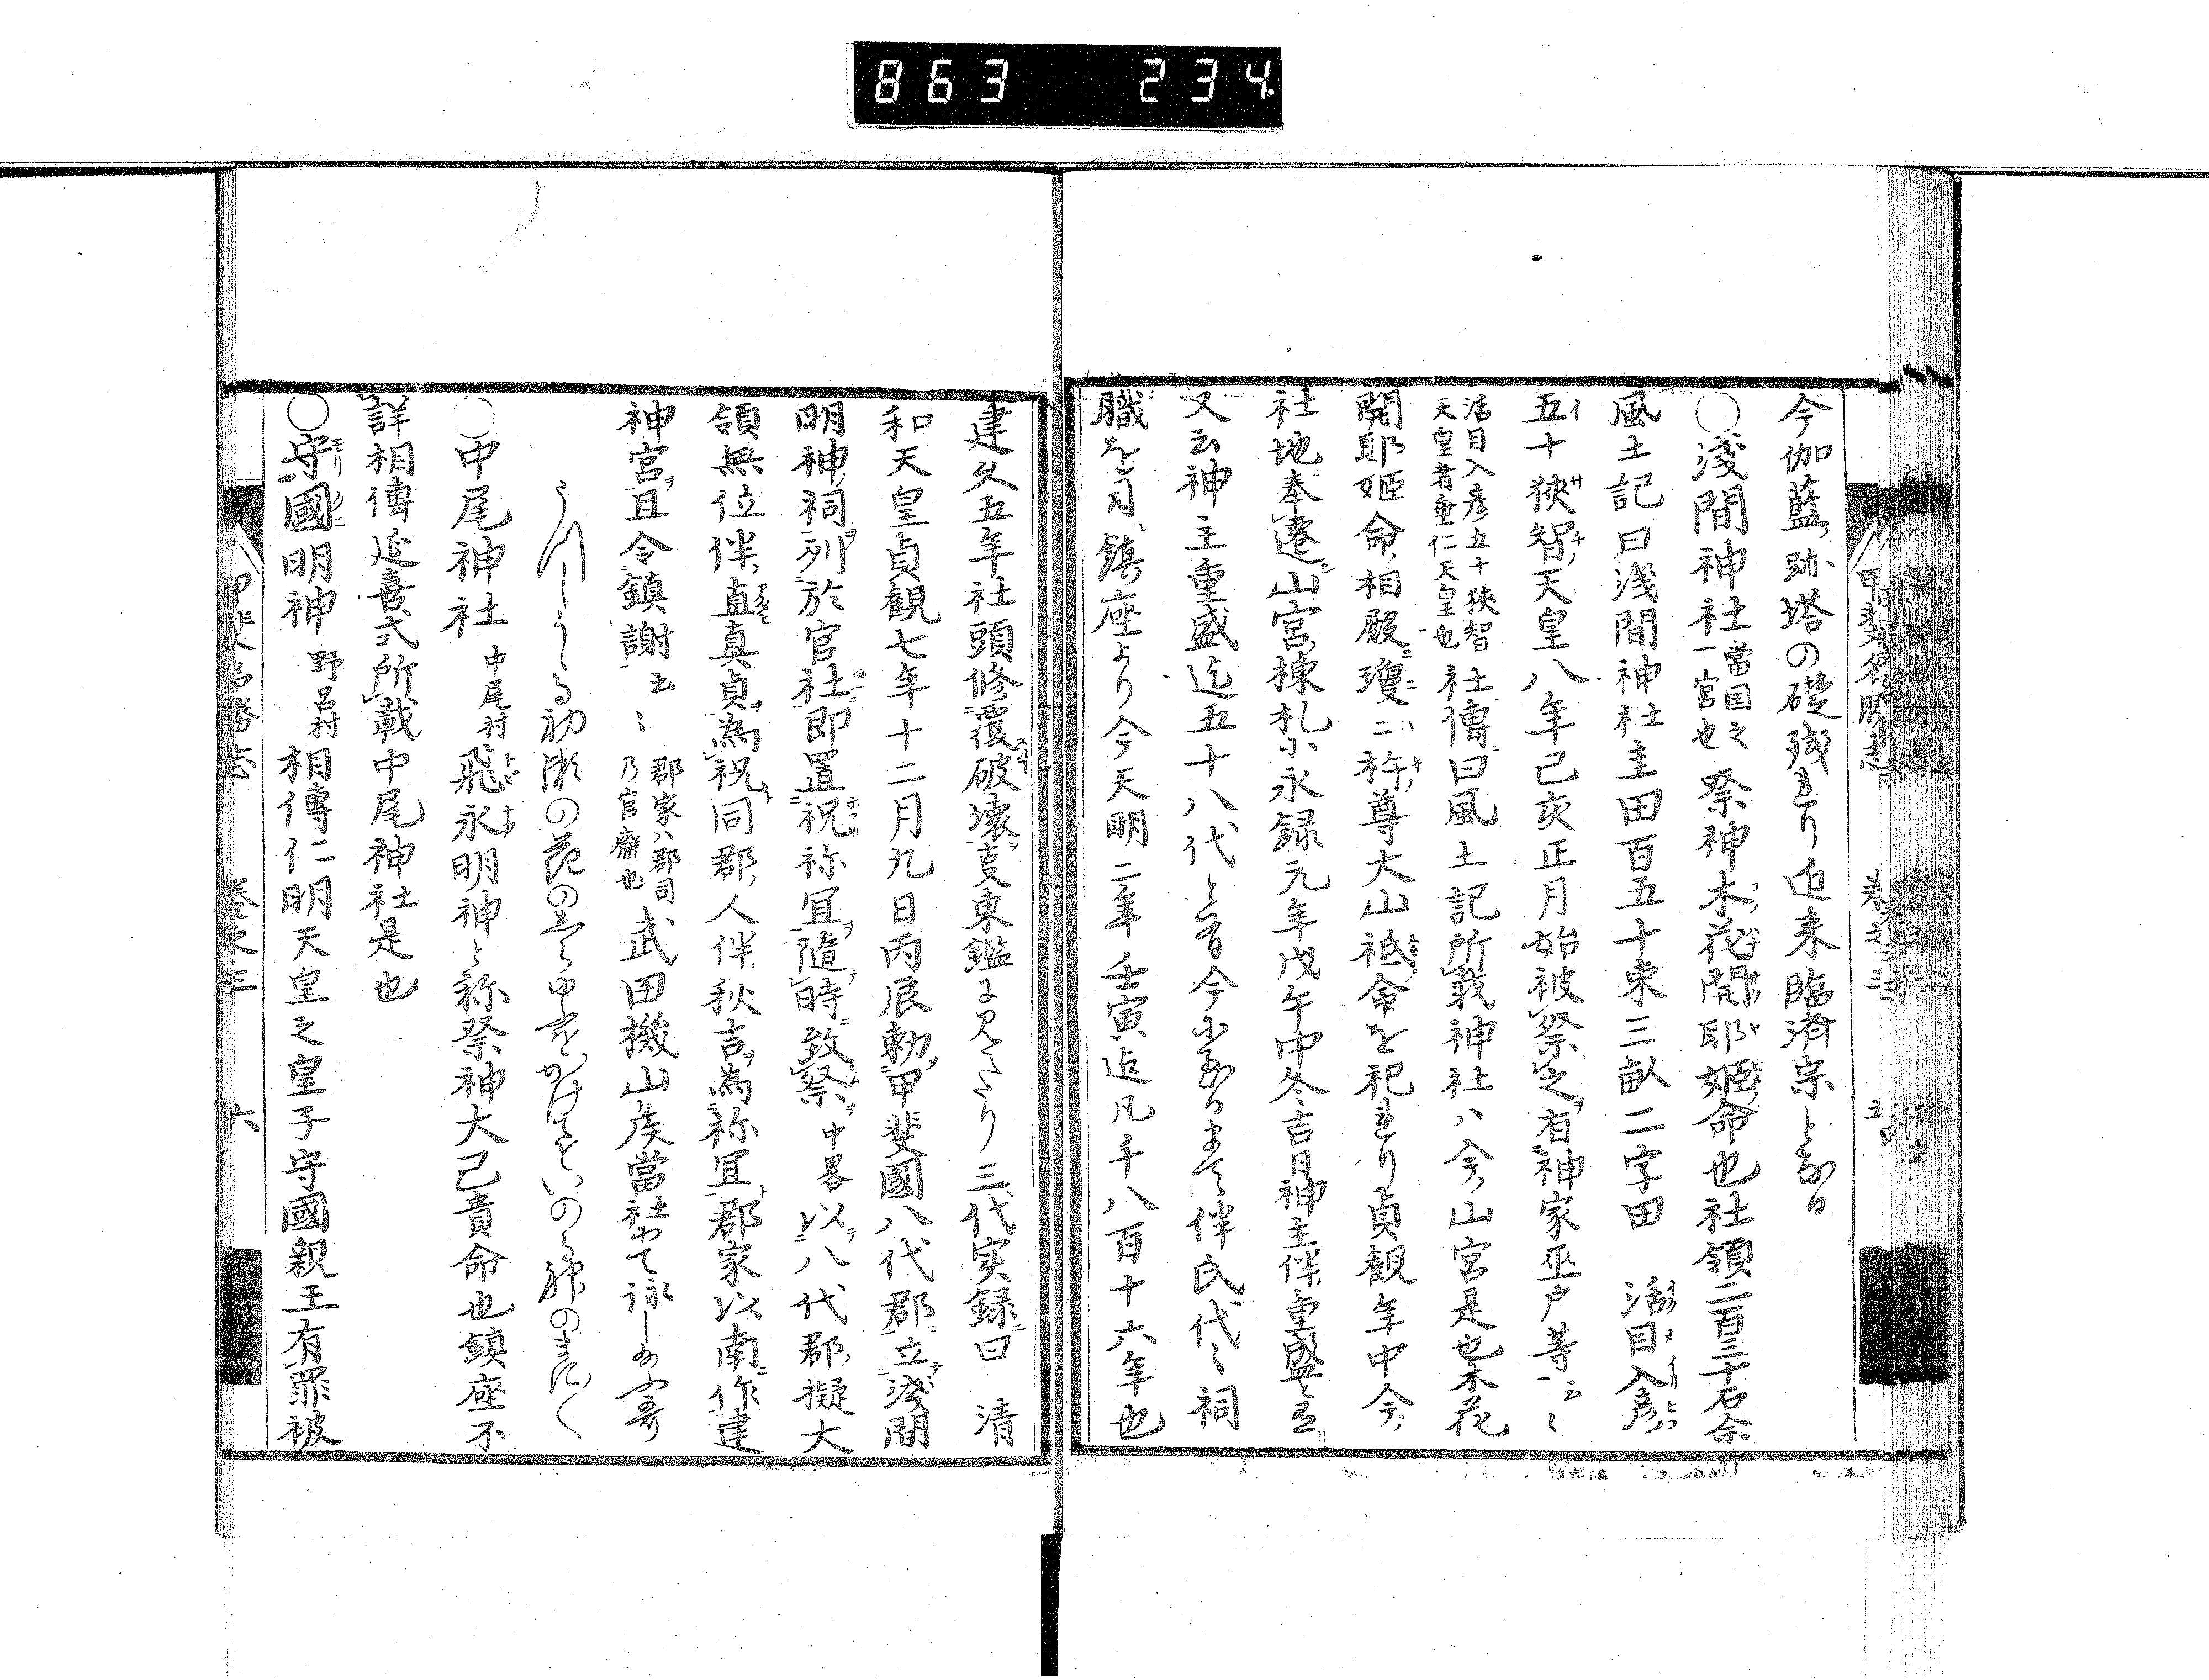 863 234
今伽藍ノ跡塔の礎残れり近来臨済宗となる
○淺間神社 當国之一宮也 祭神木花開耶姫命也社領二百三十石余
風土記曰淺間神社圭田百五十束三畝二字田 活目入彦
五十狹智天皇八年己亥正月始被祭之有神家巫戸等云々
活目入彦五十狹智天皇者垂仁天皇也 社傳曰風土記所載神社ハ今ノ山宮是也木花
開耶姫命ノ相殿ニ瓊二杵尊大山祗命を祀れり貞観年中今ノ
社地奉遷山宮ノ棟札に永録元年戊午中冬吉月神主伴ノ重盛と有
又云神主重盛迄五十八代と有今に至るまて伴氏代々祠
職を司ル鎮座より今天明二年壬寅迄凡千八百十六年也
建久五年社頭修覆破壊ヿ東鑑に見えたり三代実録曰 清
和天皇貞観七年十二月九日丙辰勅甲斐國八代郡立淺間
明神祠列於官社即置祝祢冝隨時致祭 中畧 以八代郡擬大
領無位伴直真貞為祝同郡人伴秋吉為祢冝郡家以南作建
神宮且令鎮謝云々 郡家ハ郡司乃官廨也 武田機山矦當社にて詠し給ふ哥
うつしうゝる初瀬の花のしらゆふをかけてそいのる神のまに〱
○中尾神社 中尾村 飛永明神と称祭神大己貴命也鎮座不
詳相傳延喜式所載中尾神社是也
○守國明神 野呂村 相傳仁明天皇之皇子守國親王有罪被
甲斐名勝志 巻之三 六